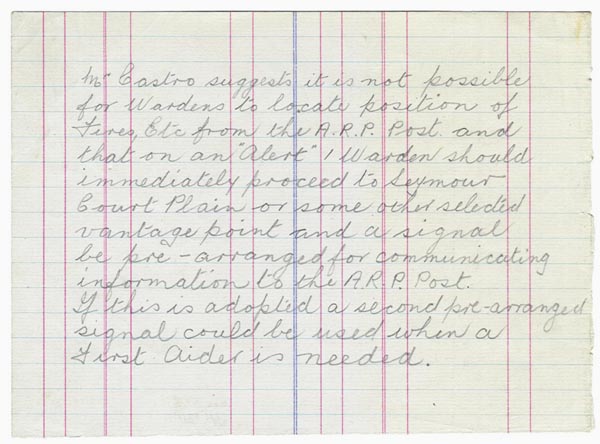 Mr Castro suggests it is not possible
for Wardens to locate position of
Fires, Etc from the A.R.P. Post. and
that on an "Alert" 1 Warden should
immediately proceed to Seymour
Court Plain or some other selected
vantage point and a signal
be pre-arranged for communicating
information to the A.R.P. Post.
If this is adopted a second pre-arranged
signal could be used when a
First Aider is needed.